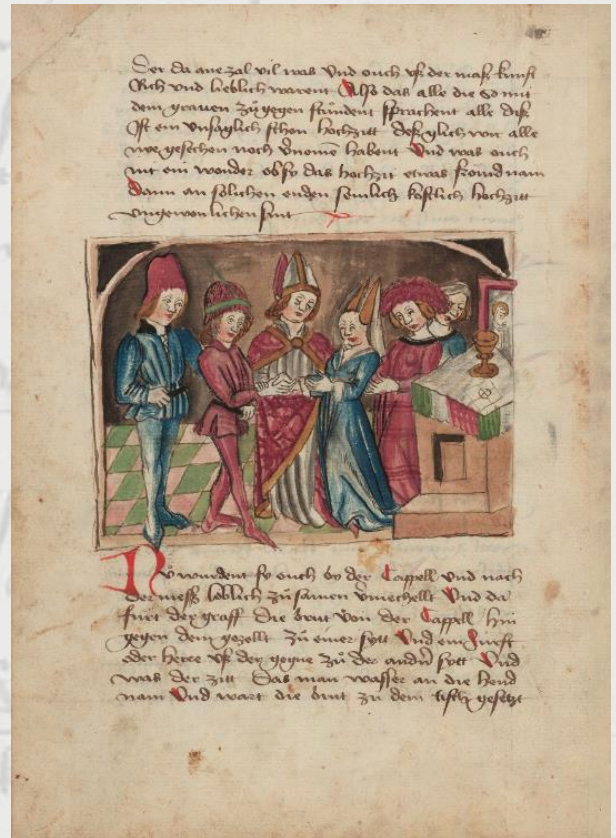 Der da ane zal vil was Vnd ouch vsz der masz kunst
Rich vnd lieblich warent Also das alle die So mit
dem grauen zů gegen stůndent sprachent alle disz
Ist ein vnsaglich schon hochzitt desz glich wir alle
nye gesechen noch v̄nomē habent Vnd was ouch
nit ein wonder ob sy das hochzit etwas frömd nam
Dann an sölichen enden semlich kostlich hochzitt
vngewonlichen sint
Nv wurdent sy ouch by der Cappell Vnd nach
der messz loblich zů samen v̄mechellt Vnd da
fůrt der graff Die brut Von der Cappell hin
gegen dem gezellt Zů einer sytt Vnd ein Fürst
oder herre vsz der gegne zů der andrn sytt Vnd
was der zitt Das man wasser an die hend
nam Vnd wart die brut zů dem tisch gesetzt